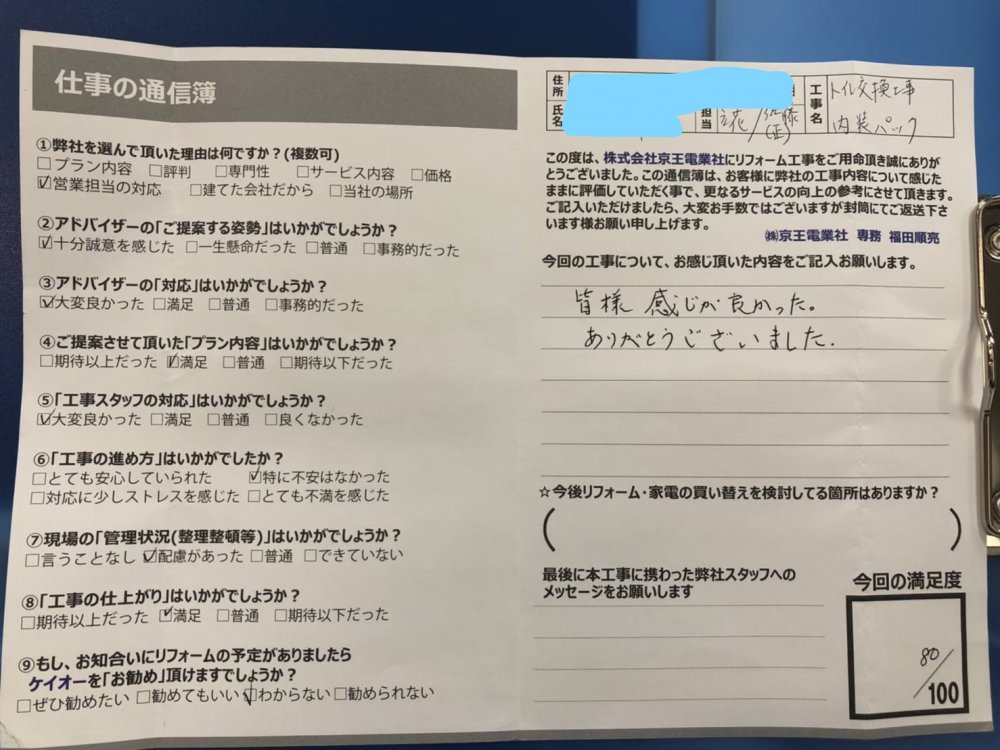 仕事の通信簿
①弊社を選んで頂いた理由は何ですか？(複数可)
□プラン内容 □評判 □専門性 □サービス内容 □価格
☑営業担当の対応 □建てた会社だから □当社の場所
②アドバイザーの「ご提案する姿勢」はいかがでしょうか？
☑十分誠意を感じた □一生懸命だった □普通 □事務的だった
③アドバイザーの「対応」はいかがでしょうか？
☑大変良かった □満足 □普通 □事務的だった
④ご提案させて頂いた「プラン内容」はいかがでしょうか？
□期待以上だった ☑満足 □普通 □期待以下だった
⑤「工事スタッフの対応」はいかがでしょうか？
☑大変良かった □満足 □普通 □良くなかった
⑥「工事の進め方」はいかがでしたか？
□とても安心していられた ☑特に不安はなかった
□対応に少しストレスを感じた □とても不満を感じた
⑦現場の「管理状況(整理整頓等)」はいかがでしょうか？
□言うことなし ☑配慮があった □普通 □できていない
⑧「工事の仕上がり」はいかがでしょうか？
□期待以上だった ☑満足 □普通 □期待以下だった
⑨もし、お知合いにリフォームの予定がありましたら
ケイオーを「お勧め」頂けますでしょうか？
□ぜひ勧めたい □勧めてもいい ☑わからない □勧められない
住所
氏名
担当
立花/佐藤
(正)
工事名
トイレ交換工事
内装パック
この度は、株式会社京王電業社にリフォーム工事をご用命頂き誠にありが
とうございました。この通信簿は、お客様に弊社の工事内容について感じた
ままに評価していただく事で、更なるサービスの向上の参考にさせて頂きます。
ご記入いただけましたら、大変お手数ではございますが封筒にてご返送下さ
います様お願い申し上げます。
㈱京王電業社 専務 福田順亮
今回の工事について、お感じ頂いた内容をご記入お願いします。
皆様 感じが良かった。
ありがとうございました.
☆今後リフォーム・家電の買い替えを検討してる箇所はありますか？
( )
最後に本工事に携わった弊社スタッフへの
メッセージをお願いします
今回の満足度
80/100